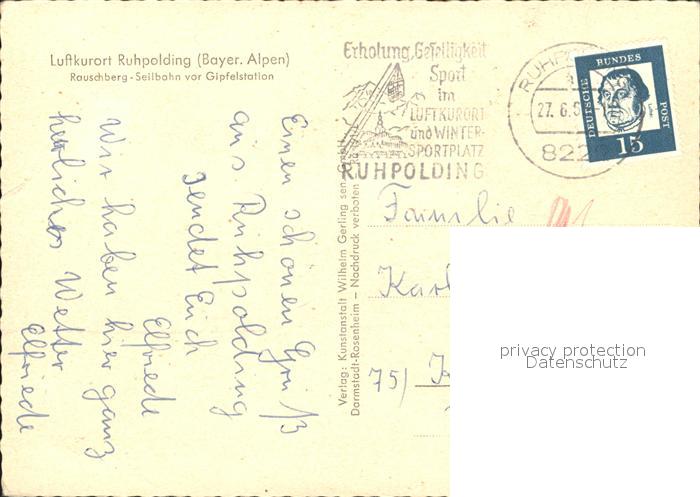 Luftkurort Ruhpolding (Bayer. Alpen)
Rauschberg-Seilbahn vor Gipfelstation
Einen schönen Gruß
aus Ruhpolding
sendet Euch
Elfriede
Wir haben hier ganz
herrliches Wetter
Elfriede
Verlag: Kunstanstalt Wilhelm Gerling sen.
Darmstadt-Rosenheim — Nachdruck verboten
Erholung, Geselligkeit
Sport
im
LUFTKURORT
und WINTER-
SPORTPLATZ
RUHPOLDING
27. 6. 6
DEUTSCHE BUNDES POST
15
Familie
75)
privacy protection
Datenschutz